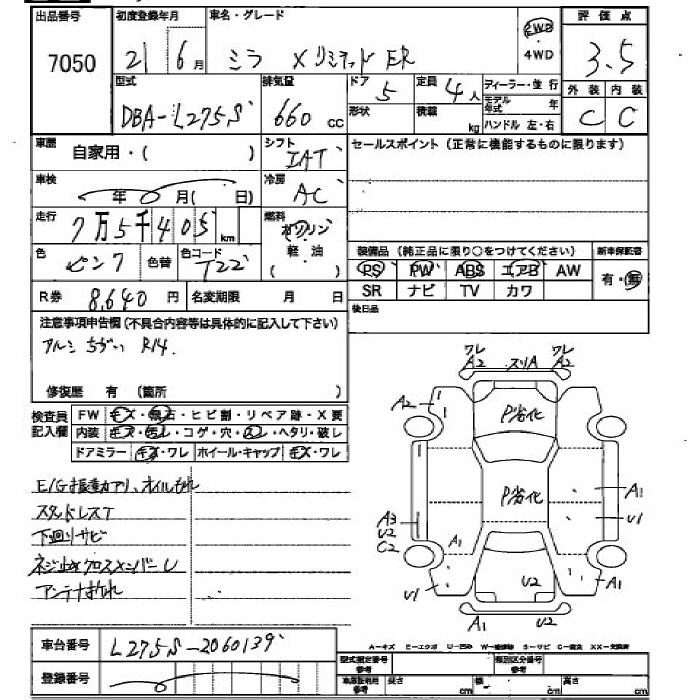 出品番号 初度登録年月 車名・グレード 評価点
7050 21年 6月 ミラ XリミテッドER 2WD 4WD 3.5
型式 排気量 ドア 定員 ディーラー・並行 外装 内装
DBA-L275S 660cc 5 4人 モデル年式 年 C C
形状 積載 kg ハンドル 左・右
車歴 自家用・( ) シフト IAT セールスポイント(正常に機能するものに限ります)
車検 年 月( 日) 冷房 AC
走行 7万5千405km 燃料 ガソリン 軽油 ( )
色 ピンク 色替 色コード T22
装備品(純正品に限り○をつけてください) 新車保証書
PS PW ABS エアB AW 有・無
SR ナビ TV カワ
R券 8,640円 名変期限 月 日
後日品
注意事項申告欄(不具合内容等は具体的に記入して下さい)
アルミちがい R14.
修復歴 有(箇所 )
検査員記入欄 FW キズ・飛石・ヒビ割・リペア跡・X要
内装 キズ・汚レ・コゲ・穴・スレ・ヘタリ・破レ
ドアミラー キズ・ワレ ホイール・キャップ キズ・ワレ
E/G振動アリ、オイルもれ
スタッドレスT
下廻りサビ
ネジ止めクロスメンバーU
アンテナおれ
ワレ A2 スリA ワレ A2
A2 P劣化
P劣化 A1
A3 U2 C2 U1
A1
U1 U2
A1 U2
車台番号 L275S-2060139
登録番号
A-キズ E-エクボ U-凹み W-補修跡 S-サビ C-腐食 XX-交換済
型式指定番号 参考 類別区分番号 参考
車庫証明用 参考 長さ cm 幅 cm 高さ cm